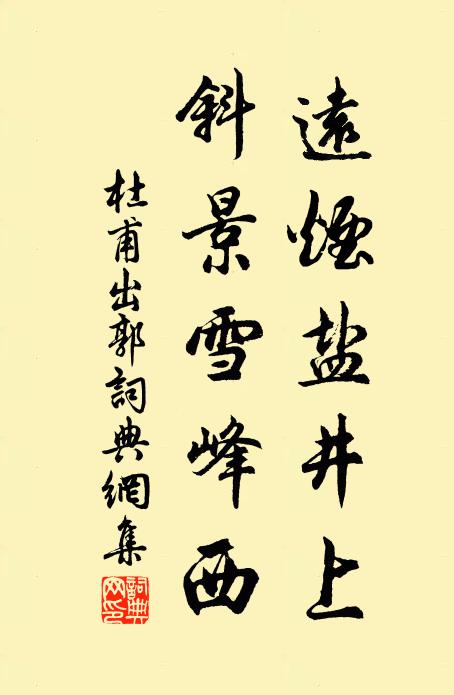 遠煙盐井上
斜景雪峰西
杜甫出郭詞典網集
詞典网印